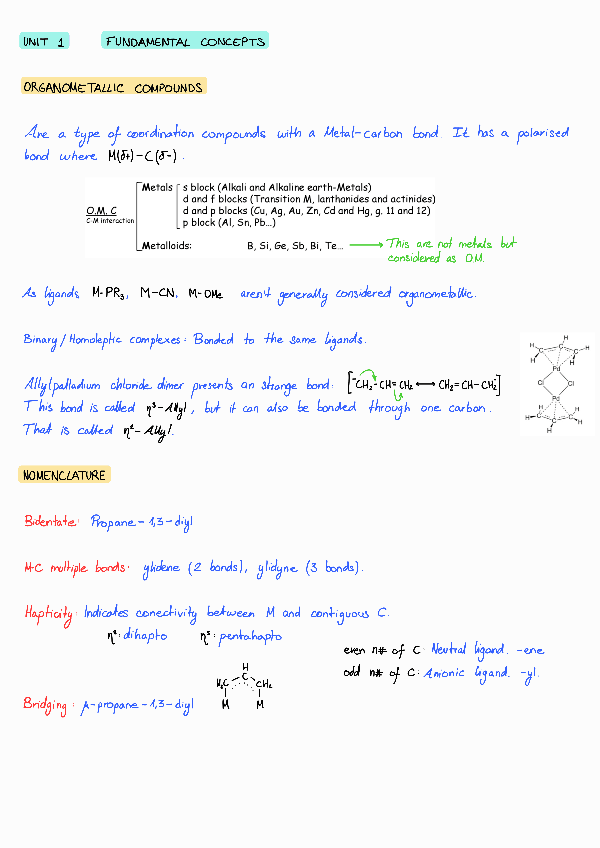 UNIT 1 FUNDAMENTAL CONCEPTS
ORGANOMETALLIC COMPOUNDS
Are a type of coordination compounds with a Metal-carbon bond. It has a polarised
bond where M(δ+)-C(δ-).
Metals s block (Alkali and Alkaline earth-Metals)
d and f blocks (Transition M, lanthanides and actinides)
O.M. C d and p blocks (Cu, Ag, Au, Zn, Cd and Hg, g. 11 and 12)
C-M interaction p block (Al, Sn, Pb...)
Metalloids: B, Si, Ge, Sb, Bi, Te... → This are not metals but
considered as O.M.
As ligands M-PR₃, M-CN, M-OMe aren't generally considered organometallic.
Binary/Homoleptic complexes: Bonded to the same ligands.
Allylpalladium chloride dimer presents an strange bond: [⁻CH₂-CH=CH₂ ⟷ CH₂=CH-CH₂⁻]
This bond is called η³-Allyl, but it can also be bonded through one carbon.
That is called η¹-Allyl.
H H H C C C H H Pd Cl Cl Pd H H C C C H H H
NOMENCLATURE
Bidentate: Propane-1,3-diyl
M-C multiple bonds: ylidene (2 bonds), ylidyne (3 bonds).
Hapticity: Indicates conectivity between M and contiguous C.
η²: dihapto η⁵: pentahapto
even n# of C: Neutral ligand. -ene
odd n# of C: Anionic ligand. -yl.
H
H₂C C CH₂
Bridging: μ-propane-1,3-diyl M M